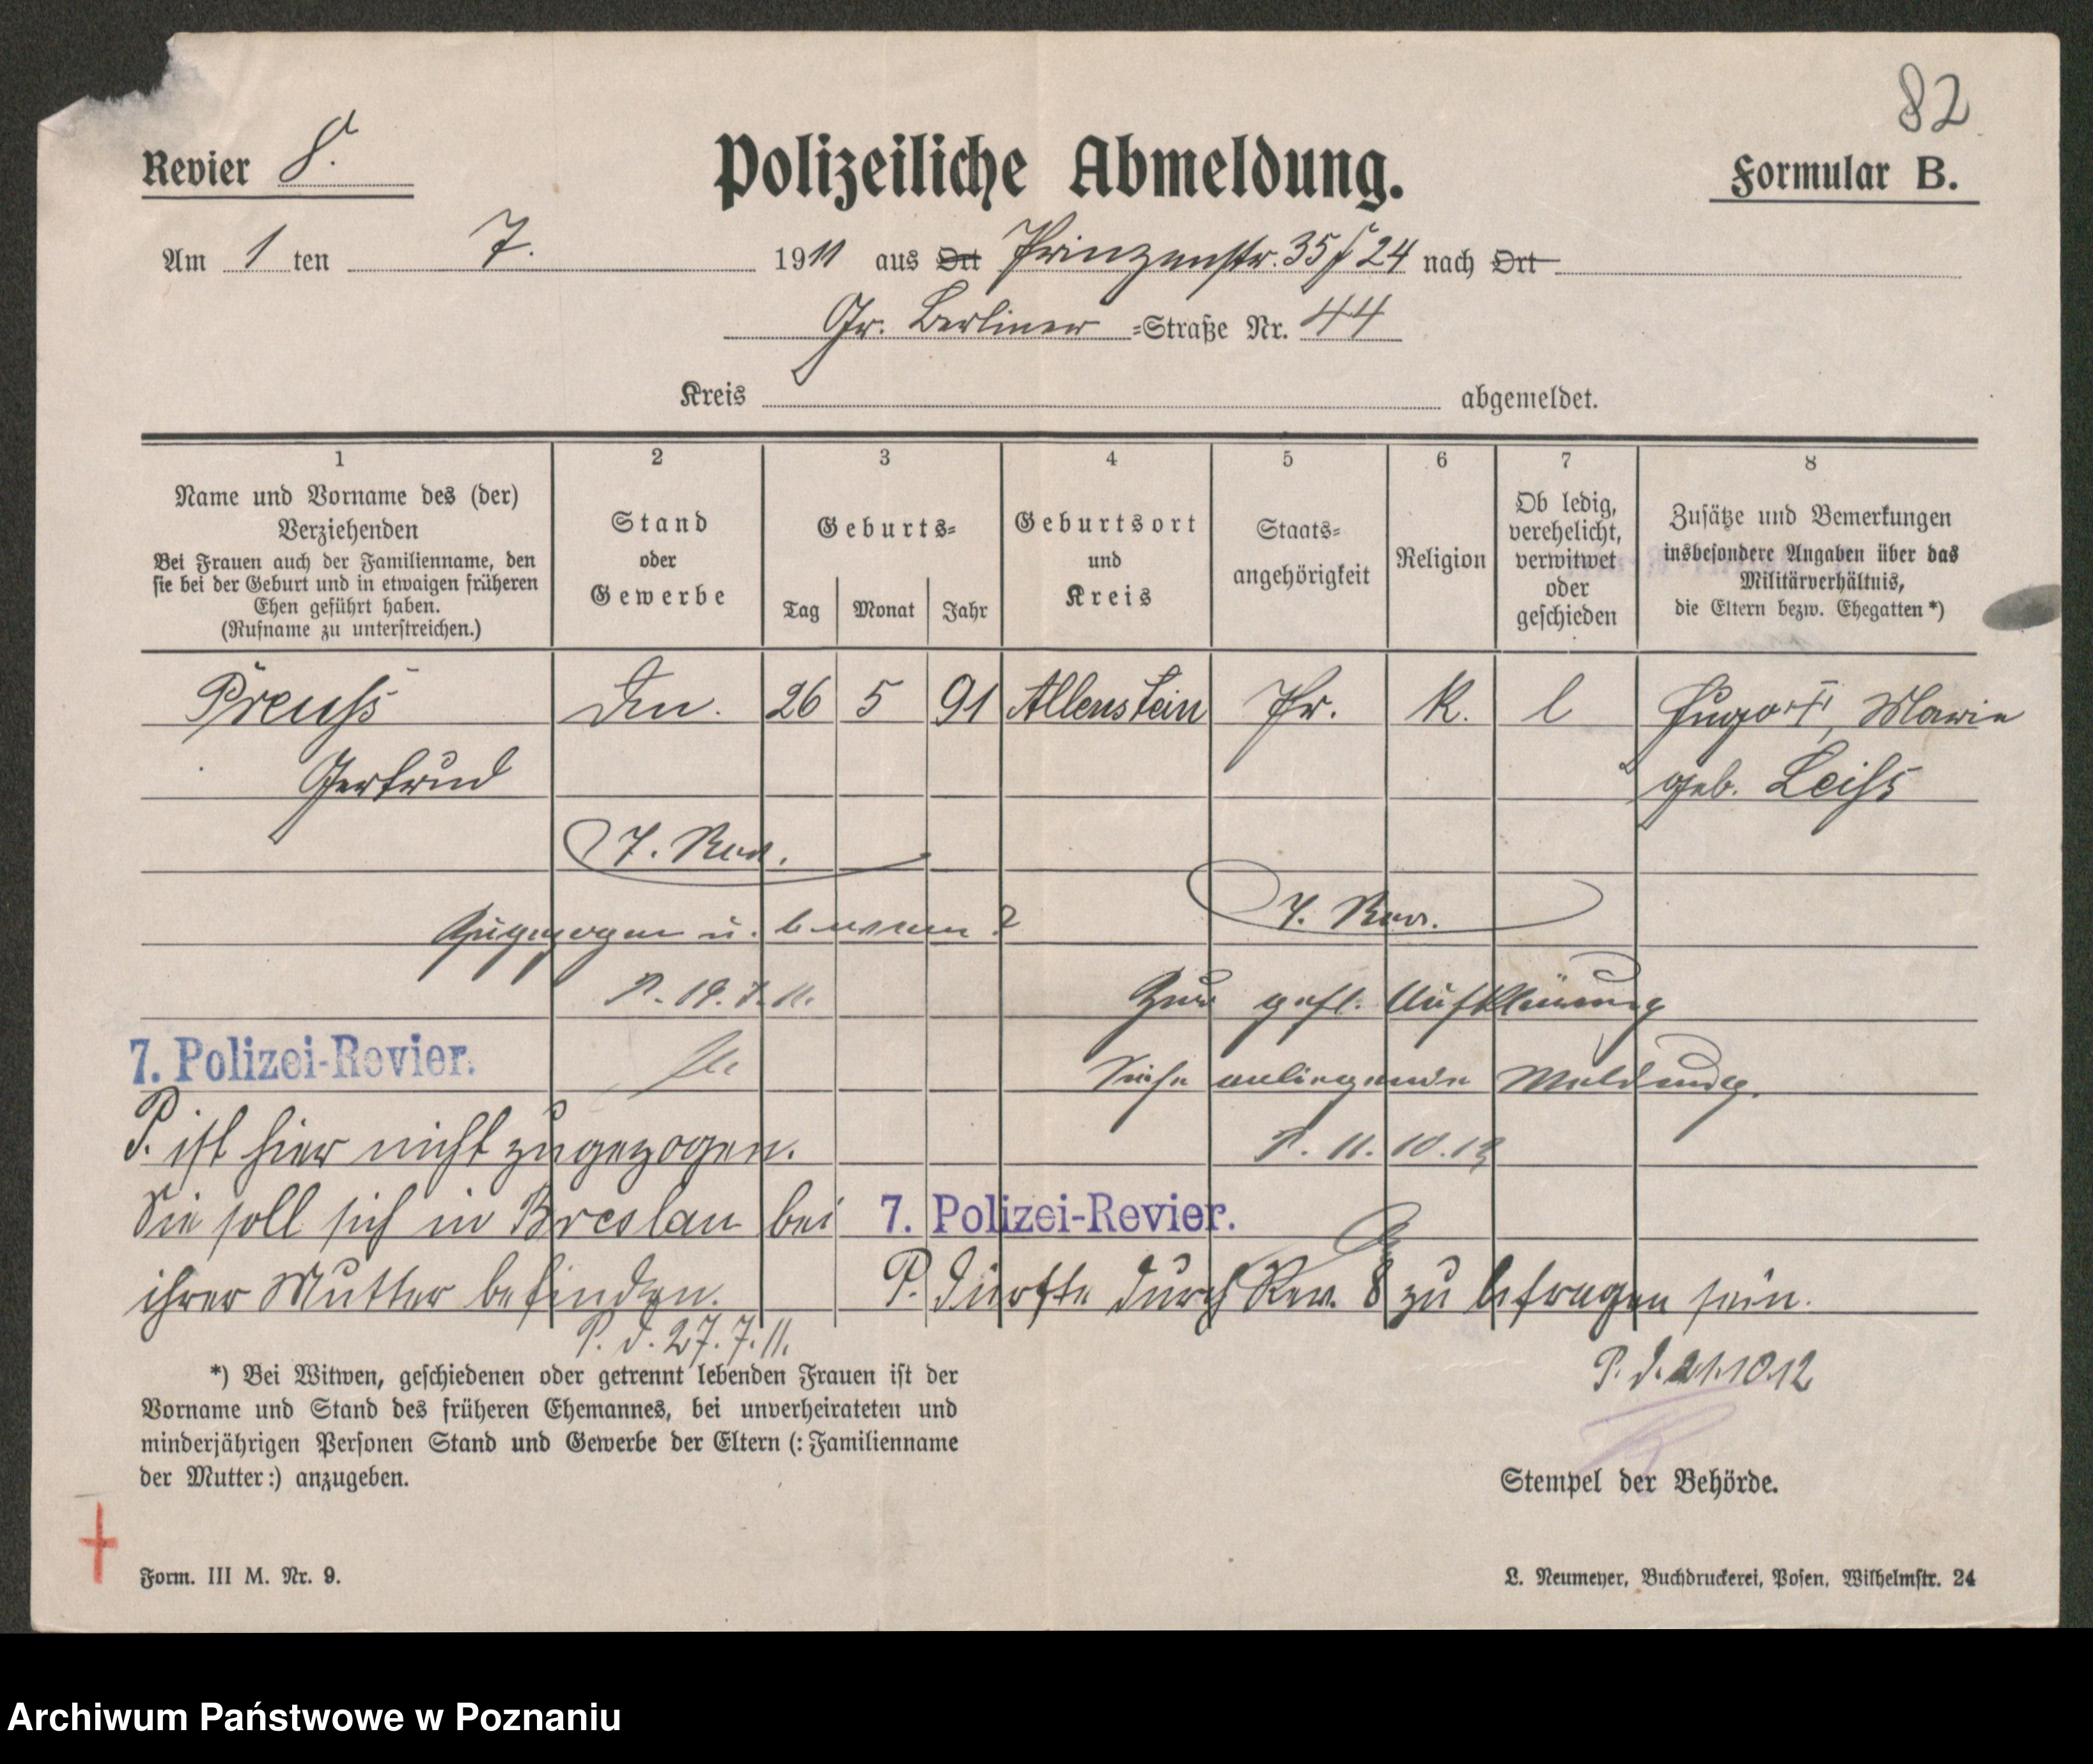 82
Revier 8.
Polizeiliche Abmeldung.
Formular B.
Am 1 ten 7. 1911 aus Ort Prinzenstr. 35 / 24 nach Ort
Gr. Berliner =Straße Nr. 44
Kreis abgemeldet.
1 2 3 4 5 6 7 8
Name und Vorname des (der)
Verziehenden
Bei Frauen auch der Familienname, den
sie bei der Geburt und in etwaigen früheren
Ehen geführt haben.
(Rufname zu unterstreichen.)
Stand
oder
Gewerbe
Geburts=
Tag Monat Jahr
Geburtsort
und
Kreis
Staats=
angehörigkeit
Religion
Ob ledig,
verehelicht,
verwitwet
oder
geschieden
Zusätze und Bemerkungen
insbesondere Angaben über das
Militärverhältnis,
die Eltern bezw. Ehegatten *)
Preuss 26 5 91 Allenstein Pr. K. l Hugo †, Marie
Gertrud geb. Leiss
7. Rev.
7. Rev.
Zugezogen u. ?
P. 19.7.11.
Zur gefl. Aufklärung
7. Polizei-Revier.
Siehe anliegende Meldung.
P. ist hier nicht zugezogen.
P. 11.10.12
Sie soll sich in Breslau bei
7. Polizei-Revier.
ihrer Mutter befinden.
P. dürfte durch Rev. 8 zu befragen sein.
P. d. 27.7.11.
P. d. 21.10.12
*) Bei Witwen, geschiedenen oder getrennt lebenden Frauen ist der
Vorname und Stand des früheren Ehemannes, bei unverheirateten und
minderjährigen Personen Stand und Gewerbe der Eltern (: Familienname
der Mutter :) anzugeben.
Stempel der Behörde.
Form. III M. Nr. 9.
L. Neumeyer, Buchdruckerei, Posen, Wilhelmstr. 24
Archiwum Państwowe w Poznaniu